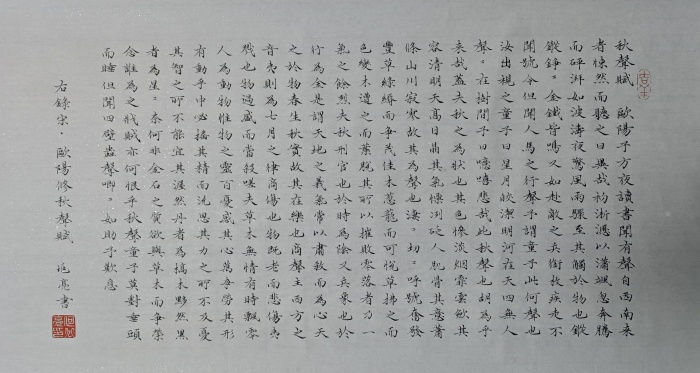 秋聲賦 歐陽子方夜讀書聞有聲自西南來
者悚然而聽之曰異哉初淅瀝以瀟颯忽奔騰
而砰湃如波濤夜驚風雨驟至其觸於物也鏦
鏦錚〃金鐵皆鳴又如赴敵之兵銜枚疾走不
聞號令但聞人馬之行聲予謂童子此何聲也
汝出視之童子曰星月皎潔明河在天四無人
聲〃在樹間予曰噫嘻悲哉此秋聲也胡為乎
來哉蓋夫秋之為狀也其色慘淡烟霏雲歛其
容清明天高日晶其氣慄冽砭人肌骨其意蕭
條山川寂寥故其為聲也淒〃切〃呼號奮發
豐草綠縟而爭茂佳木蔥蘢而可悅草拂之而
色變木遭之而葉脫其所以摧敗零落者乃一
氣之餘烈夫秋刑官也於時為陰又兵象也於
行為金是謂天地之義氣常以肅殺而為心天
之於物春生秋實故其在樂也商聲主西方之
音夷則為七月之律商傷也物既老而悲傷夷
戮也物過盛而當殺嗟夫草木無情有時飄零
人為動物惟物之靈百憂感其心萬事勞其形
有動乎中必搖其精而況思其力之所不及憂
其智之所不能宜其渥然丹者為槁木黟然黑
者為星〃奈何非金石之質欲與草木而爭榮
念誰為之戕賊亦何恨乎秋聲童子莫對垂頭
而睡但聞四壁蟲聲唧〃如助予歎息
右錄宋·歐陽修秋聲賦 亮書